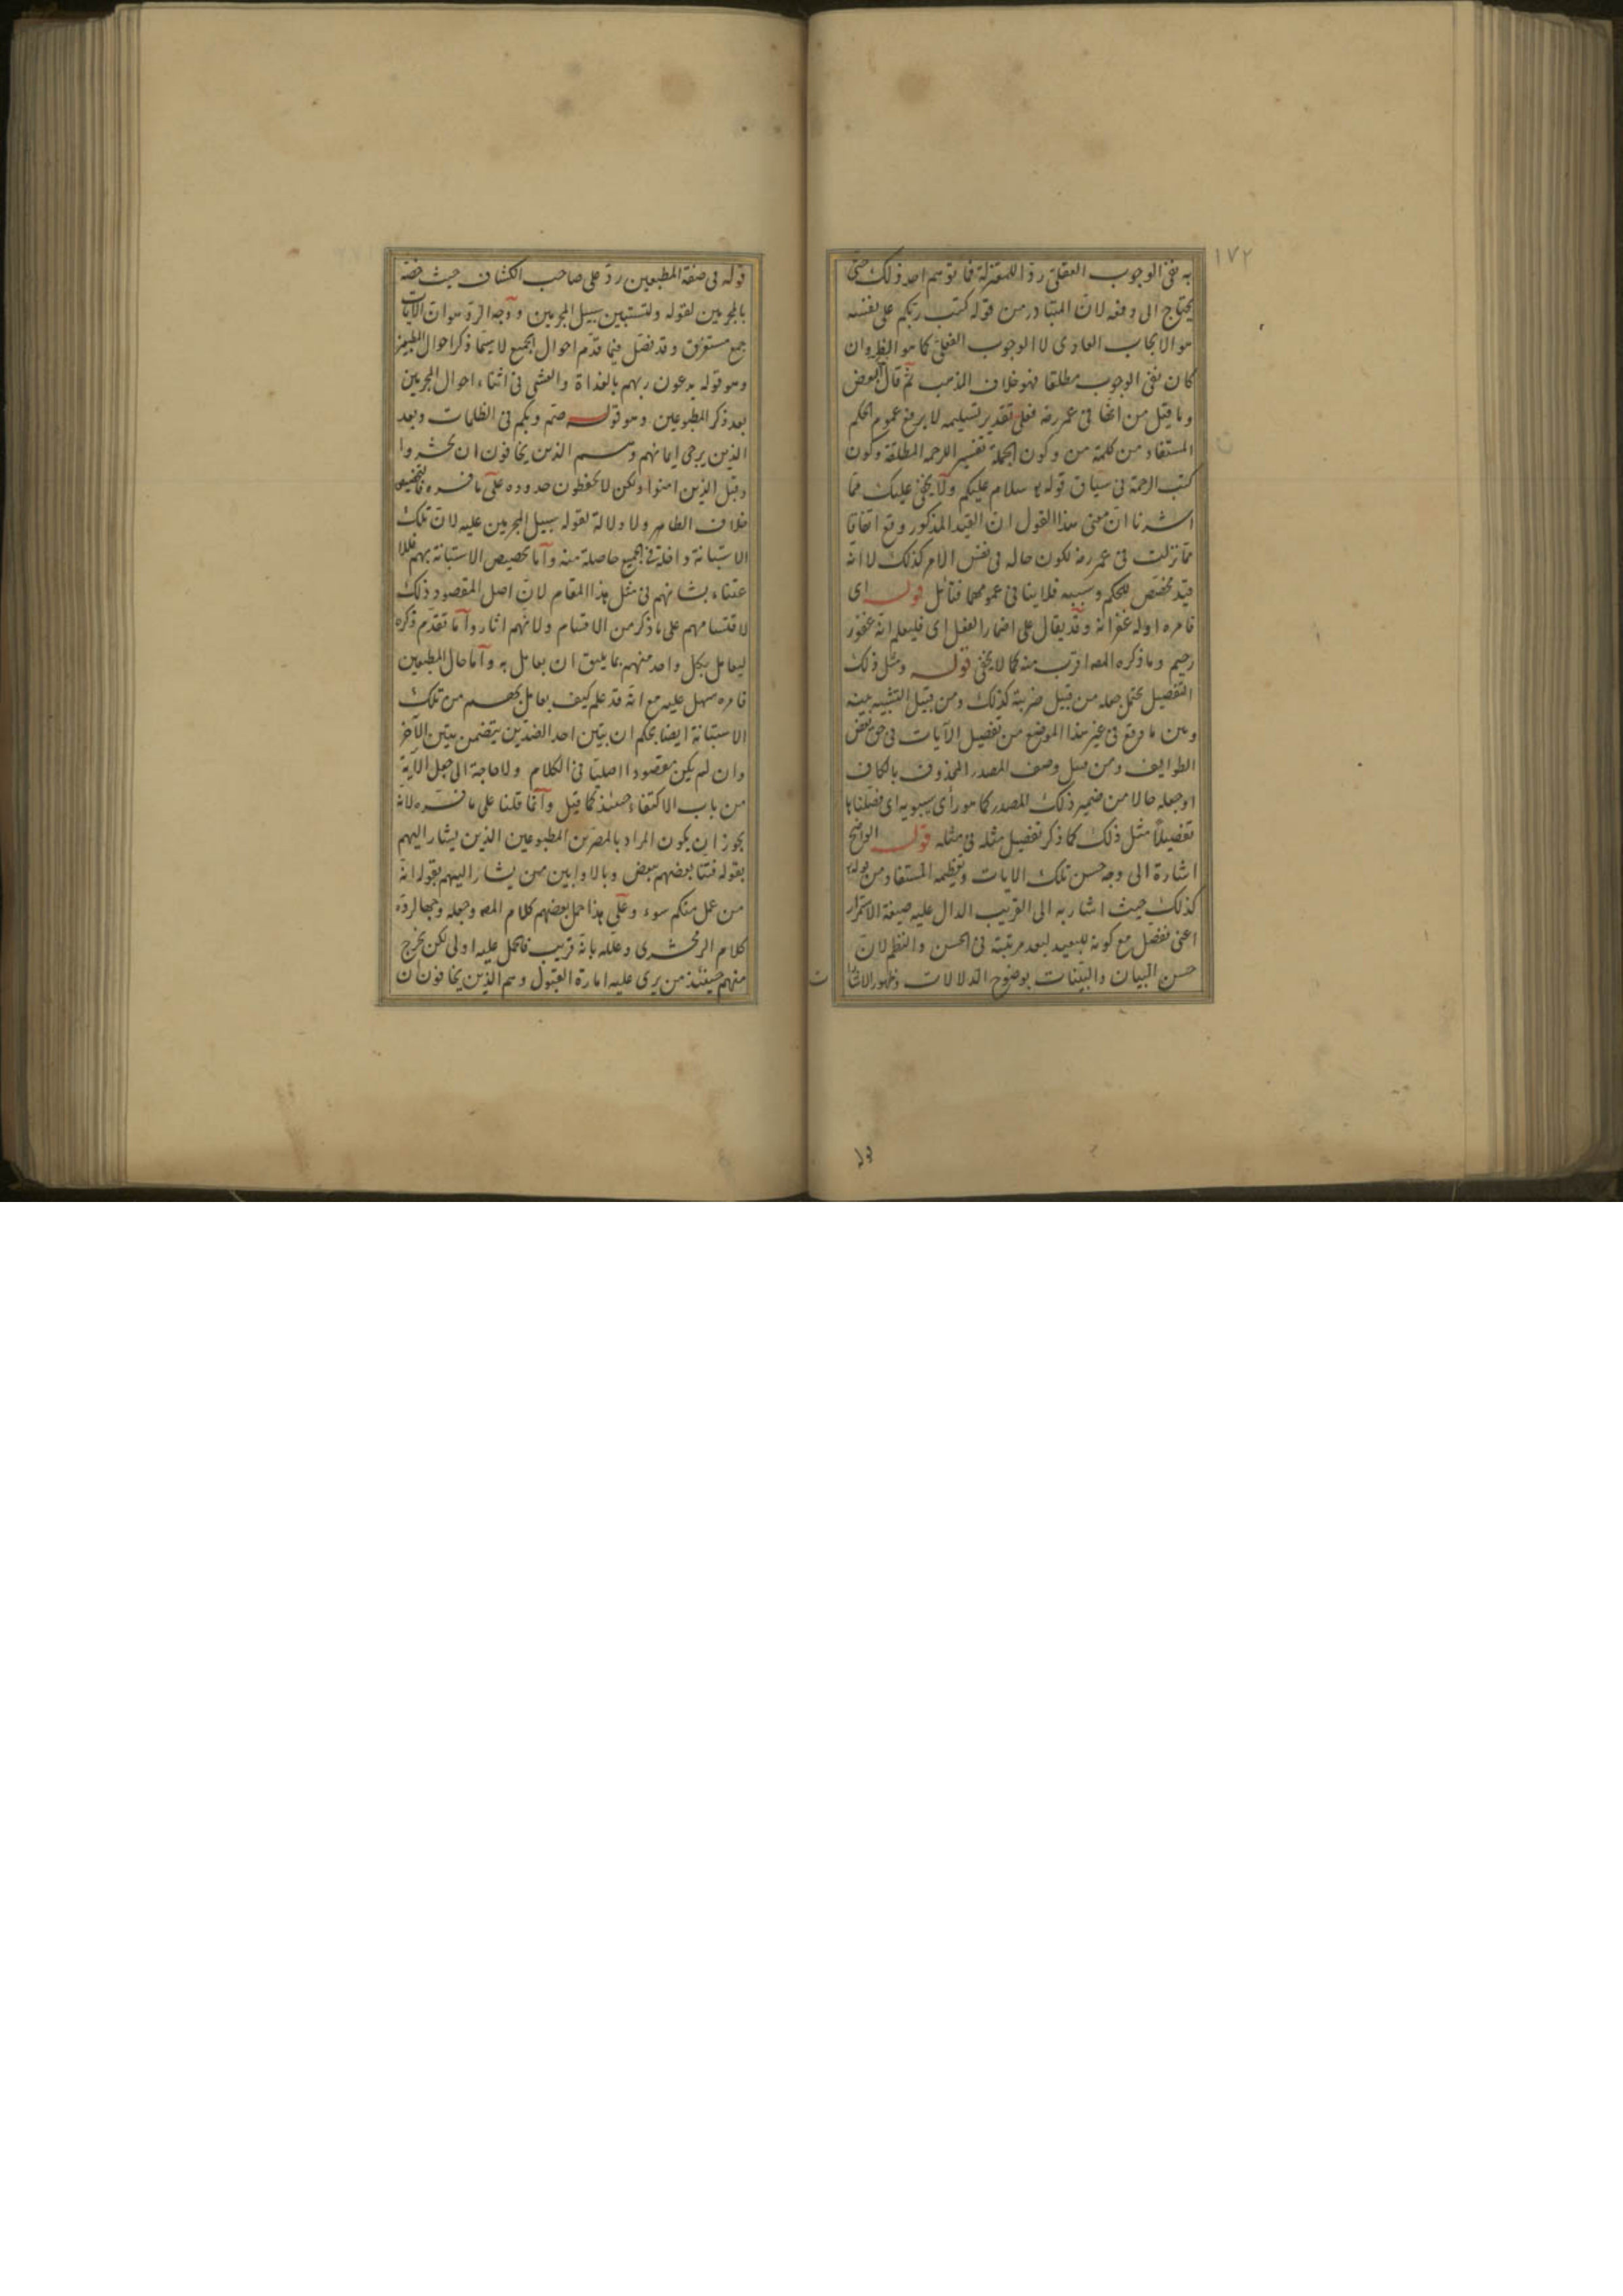 ١٧٢
به نفى الوجوب العقلى ردا للمعتزلة فما توهم احد ذلك حتى
يحتاج الى دفعه لان المتبادر من قوله كتب ربكم على نفسه
هو الايجاب العادى لا الوجوب العقلى كما هو الظ وان
كان نفى الوجوب مطلقا فهو خلاف المذهب ثم قال البعض
وما قيل من انها فى عمر رضه فعلى تقدير تسليمه لا يرفع عموم الحكم
المستفاد من كلمة من وكون الجملة تفسير الرحمه المطلقة وكون
كتب الرحمة فى سياق قوله سلام عليكم ولا يخفى عليك مما
اشرنا ان معنى هذا القول ان القيد المذكور وقع اتفاقا
مما نزلت فى عمر رضه لكون حاله فى نفس الامر كذلك لا انه
قيد مخصص للحكم وسببه فلا ينافى عمومها فتأمل قوله اى
فامره او له غفرانه وقد يقال على اضمار الفعل اى فليعلم انه غفور
رحيم وما ذكره المص اقرب منه كما لا يخفى قوله ومثل ذلك
التفصيل يحتمل جعله من قبيل ضربته كذلك ومن قبيل التشبيه بينه
وبين ما وقع فى غير هذا الموضع من تفصيل الآيات فى حق بعض
الطوايف ومن قبيل وصف المصدر المحذوف بالكاف
او جعله حالا من ضمير ذلك المصدر كما هو رأى سيبويه اى فصلناها
تفصيلاً مثل ذلك كما ذكر تفصيل مثله فى مثله قوله الواضح
اشارة الى وجه حسن تلك الايات وتعظيمه المستفاد من قوله
كذلك حيث اشار به الى القريب الدال عليه صيغة الاستمرار
اعنى نفصل مع كونه للبعيد لبعد مرتبته فى الحسن والنظم لان
حسن البيان والبينات بوضوح الدلالات وظهور الاشا
ت
قوله فى صفة المطبعين رد على صاحب الكشاف حيث خصه
بالمجرمين لقوله ولتستبين سبيل المجرمين ووجه الرد هو ان الآيات
جمع مستغرق وقد نفصل فيما قدم احوال الجميع لا سيما ذكر احوال المطيعين
وهو قوله يدعون ربهم بالغداة والعشى فى اثناء احوال المجرمين
بعد ذكر المطبوعين وهو قوله صم وبكم فى الظلمات وبعد
الذين يرجى ايمانهم وهم الذين يخافون ان يحشروا
وقبل الذين امنوا ولكن لا يحفظون حدوده على ما فسره فالتخصيص
خلاف الظاهر ولا دلالة لقوله سبيل المجرمين عليه لان تلك
الاستبانة داخلة فى الجميع حاصلة منه وانما تخصيص الاستبانة بهم فللا
عتناء بشانهم فى مثل هذا المقام لان اصل المقصود ذلك
لاقتسامهم على ما ذكر من الاقسام ولانهم اثار وانما تقدم ذكره
ليعامل بكل واحد منهم بما يليق ان يعامل به واما حال المطيعين
فامره سهل عليه مع انه قد علم كيف يعامل بهم من تلك
الاستبانة ايضا بحكم ان تبين احد الضدين يتضمن تبين الآخر
وان لم يكن مقصودا اصليا فى الكلام ولا حاجة الى جعل الآية
من باب الاكتفاء حينئذ كما قيل وانما قلنا على ما فسره لانه
يجوز ان يكون المراد بالمصرين المطبوعين الذين يشار اليهم
بقوله فتنا بعضهم ببعض وبالاوابين ممن يشار اليهم بقوله انه
من عمل منكم سوء وعلى هذا حمل بعضهم كلام المص وجعله وجها لرده
كلام الزمخشرى وعلله بانه قريب فالحمل عليه اولى لكن يخرج
منهم حينئذ من يرى عليه امارة القبول وهم الذين يخافون ان